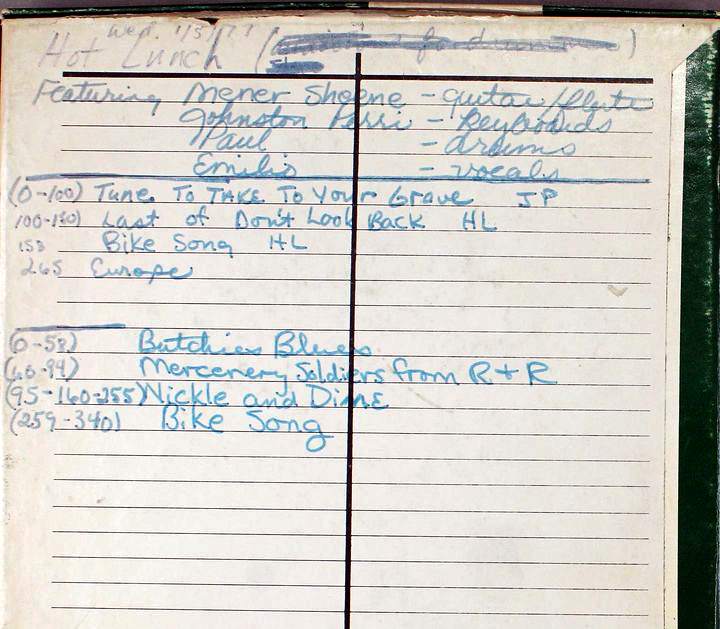 Wed. 1/5/77
Hot Lunch ( )
Featuring Mener Sheene - guitar/flute
Johnston Perri - Keyboards
Paul - drums
Emilio - vocals
(0-100) Tune To TAKE To Your Grave JP
100-150) Last of Don't Look Back HL
158 Bike Song HL
265 Europe
(0-58) Butchies Blues
(60-94) Mercenery Soldiers from R + R
(95-160-255) Nickle and Dime
(259-340) Bike Song